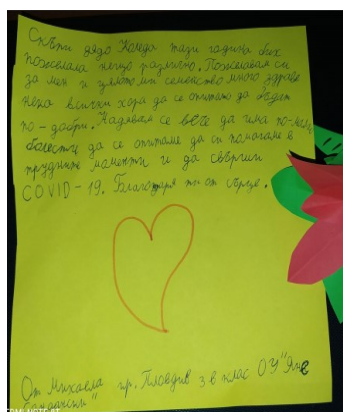 Скъпи дядо Коледа тази година бих
пожелала нещо различно. Пожелавам си
за мен и цялото ми семейство много здраве
нека всички хора да се опитат да бъдат
по-добри. Надявам се вече да има по-малко
болести да се опитаме да си помагаме в
трудните моменти и да свърши
COVID-19. Благодаря ти от сърце.
От Михаела гр. Пловдив 3 в клас ОУ "Яне
Сандански"